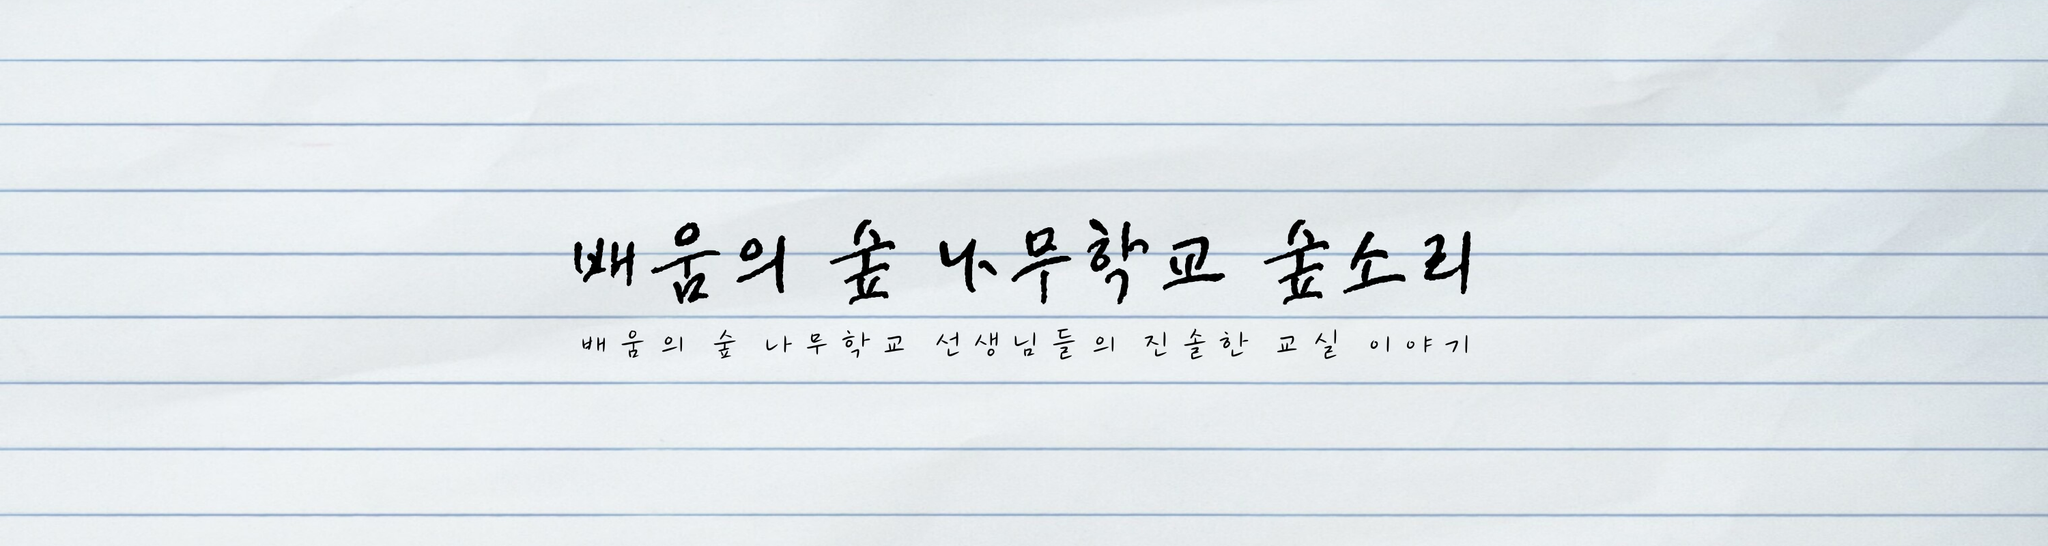 배움의 숲 나무학교 숲소리
배움의 숲 나무학교 선생님들의 진솔한 교실 이야기